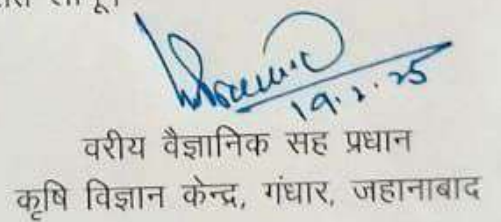 19.2.25
वरीय वैज्ञानिक सह प्रधान
कृषि विज्ञान केन्द्र, गंधार, जहानाबाद